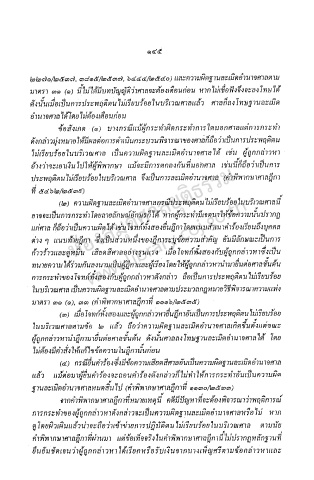 ๑๔๕
๒๒๗๐/๒๕๓๗, ๓๘๑๕/๒๕๓๗, ๖๔๔๔/๒๕๔๐) และความผิดฐานละเมิดอำนาจศาลตาม
มาตรา ๓๑ (๑) นี้ไม่ได้มีบทบัญญัติว่าศาลจะต้องเตือนก่อน หากไม่เชื่อฟังจึงจะลงโทษได้
ดังนั้นเมื่อเป็นการประพฤติตนไม่เรียบร้อยในบริเวณศาลแล้ว ศาลก็ลงโทษฐานละเมิด
อำนาจศาลได้โดยไม่ต้องเตือนก่อน
ข้อสังเกต (๑) บางกรณีแม้ผู้กระทำผิดกระทำการใดนอกศาลแต่การกระทำ
ดังกล่าวมุ่งหมายให้มีผลต่อการดำเนินกระบวนพิจารณาของศาลก็ถือว่าเป็นการประพฤติตน
ไม่เรียบร้อยในบริเวณศาล เป็นความผิดฐานละเมิดอำนาจศาลได้ เช่น ผู้ถูกกล่าวหา
อ้างว่าจะเอาเงินไปให้ผู้พิพากษา แม้จะมีการตกลงกันที่นอกศาล เช่นนี้ก็ถือว่าเป็นการ
ประพฤติตนไม่เรียบร้อยในบริเวณศาล จึงเป็นการละเมิดอำนาจศาล (คำพิพากษาศาลฎีกา
ที่ ๕๔๖๒/๒๕๓๙)
(๒) ความผิดฐานละเมิดอำนาจศาลกรณีประพฤติตนไม่เรียบร้อยในบริเวณศาลนี้
อาจจะเป็นการกระทำโดยลายลักษณ์อักษรก็ได้ หากผู้กระทำมีเจตนาให้ข้อความนั้นปรากฏ
แก่ศาล ก็ถือว่าเป็นความผิดได้ เช่นโจทก์ทั้งสองยื่นฎีกาโดยแนบสำเนาคำร้องเรียนถึงบุคคล
ต่าง ๆ แนบท้ายฎีกา ซึ่งเป็นส่วนหนึ่งของฎีการะบุข้อความสำคัญ อันมีลักษณะเป็นการ
ก้าวร้าวและดูหมิ่น เสียดสีศาลอย่างรุนแรง เมื่อโจทก์ทั้งสองกับผู้ถูกกล่าวหาซึ่งเป็น
ทนายความได้ร่วมกันลงนามเป็นผู้ฎีกาและผู้เรียงโดยให้ผู้ถูกกล่าวหานำมายื่นต่อศาลชั้นต้น
การกระทำของโจทก์ทั้งสองกับผู้ถูกกล่าวหาดังกล่าว ถือเป็นการประพฤติตนไม่เรียบร้อย
ในบริเวณศาล เป็นความผิดฐานละเมิดอำนาจศาลตามประมวลกฎหมายวิธีพิจารณาความแพ่ง
มาตรา ๓๑ (๑), ๓๓ (คำพิพากษาศาลฎีกาที่ ๑๑๑๖/๒๕๓๕)
(๓) เมื่อโจทก์ทั้งสองและผู้ถูกกล่าวหายื่นฎีกาอันเป็นการประพฤติตนไม่เรียบร้อย
ในบริเวณศาลตามข้อ ๒ แล้ว ถือว่าความผิดฐานละเมิดอำนาจศาลเกิดขึ้นตั้งแต่ขณะ
ผู้ถูกกล่าวหานำฎีกามายื่นต่อศาลชั้นต้น ดังนั้นศาลลงโทษฐานละเมิดอำนาจศาลได้ โดย
ไม่ต้องมีคำสั่งให้แก้ไขข้อความในฎีกานั้นก่อน
(๔) กรณียื่นคำร้องซึ่งมีข้อความเสียดสีศาลอันเป็นความผิดฐานละเมิดอำนาจศาล
แล้ว แม้ต่อมาผู้ยื่นคำร้องจะถอนคำร้องดังกล่าวก็ไม่ทำให้การกระทำอันเป็นความผิด
ฐานละเมิดอำนาจศาลหมดสิ้นไป (คำพิพากษาศาลฎีกาที่ ๑๑๓๐/๒๕๓๓)
จากคำพิพากษาศาลฎีกาที่หมายเหตุนี้ คดีมีปัญหาที่จะต้องพิจารณาว่าพฤติการณ์
การกระทำของผู้ถูกกล่าวหาดังกล่าวจะเป็นความผิดฐานละเมิดอำนาจศาลหรือไม่ หาก
ดูโดยผิวเผินแล้วน่าจะถือว่าเข้าข่ายการปฏิบัติตนไม่เรียบร้อยในบริเวณศาล ตามนัย
คำพิพากษาศาลฎีกาที่ผ่านมา แต่ข้อเท็จจริงในคำพิพากษาศาลฎีกานี้ไม่ปรากฏหลักฐานที่
ยืนยันชัดเจนว่าผู้ถูกกล่าวหาได้เรียกหรือรับเงินจากนางเพ็ญศรีตามข้อกล่าวหาและ